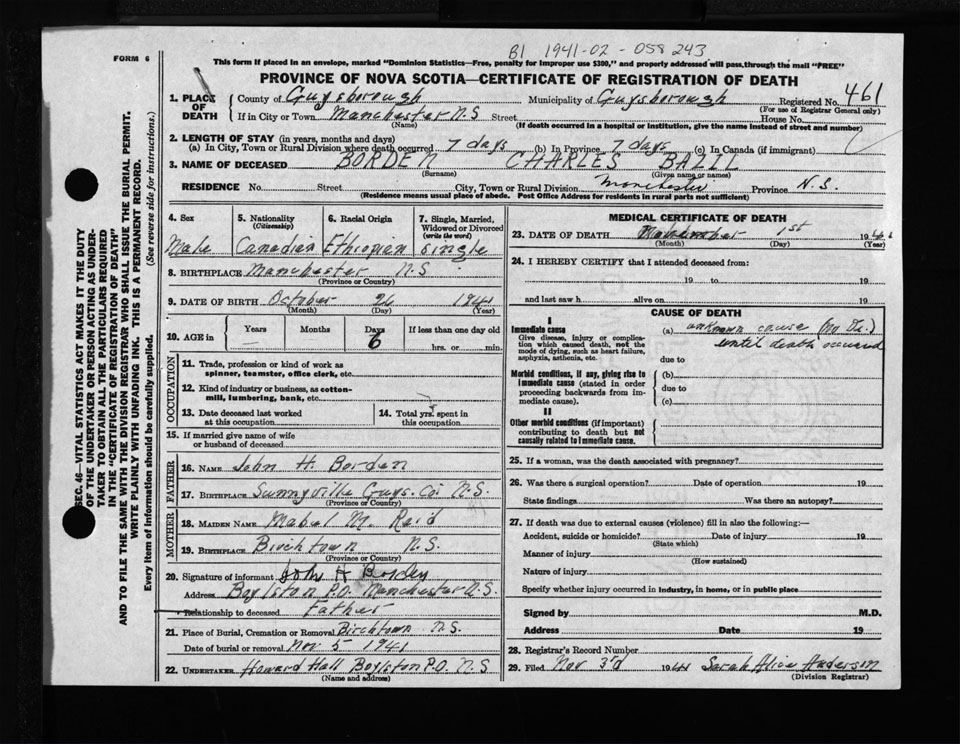 B1 1941-02-058243
FORM 6
This form if placed in an envelope, marked "Dominion Statistics—Free, penalty for improper use $300," and property addressed will pass, through the mail "FREE"
PROVINCE OF NOVA SCOTIA—CERTIFICATE OF REGISTRATION OF DEATH
1. PLACE OF DEATH
County of Guysborough Municipality of Guysborough Registered No. 461
(For use of Registrar General only)
If in City or Town Manchester N.S Street House No.
(Name) (If death occurred in a hospital or institution, give the name instead of street and number)
2. LENGTH OF STAY (in years, months and days)
(a) In City, Town or Rural Division where death occurred 7 days (b) In Province 7 days (c) In Canada (if immigrant)
3. NAME OF DECEASED BORDEN CHARLES BAZIL
(Surname) (Given name or names)
RESIDENCE No. Street City, Town or Rural Division Manchester Province N.S.
(Residence means usual place of abode. Post Office Address for residents in rural parts not sufficient)
4. Sex 5. Nationality 6. Racial Origin 7. Single, Married, Widowed or Divorced
(Citizenship) (write the word)
Male Canadian Ethiopian single
8. BIRTHPLACE Manchester N.S
(Province or Country)
9. DATE OF BIRTH October 26 1941
(Month) (Day) (Year)
10. AGE in Years Months Days If less than one day old
6 hrs. or min.
OCCUPATION
11. Trade, profession or kind of work as spinner, teamster, office clerk, etc.
12. Kind of industry or business, as cotton-mill, lumbering, bank, etc.
13. Date deceased last worked at this occupation
14. Total yrs. spent in this occupation
15. If married give name of wife or husband of deceased
FATHER
16. NAME John H. Borden
17. BIRTHPLACE Sunnyville Guys. Co. N.S.
(Province or Country)
MOTHER
18. MAIDEN NAME Mabel M. Reid
19. BIRTHPLACE Birchtown N.S.
(Province or Country)
20. Signature of informant John H Borden
Address Boylston P.O. Manchester N.S.
Relationship to deceased Father
21. Place of Burial, Cremation or Removal Birchtown N.S.
Date of burial or removal Nov 5 1941
22. UNDERTAKER Howard Hall Boylston P.O. N.S
(Name and address)
MEDICAL CERTIFICATE OF DEATH
23. DATE OF DEATH November 1st 194
(Month) (Day) (Year)
24. I HEREBY CERTIFY that I attended deceased from:
19 to 19
and last saw h alive on 19
CAUSE OF DEATH
I
Immediate cause
Give disease, injury or complication which caused death, not the mode of dying, such as heart failure, asphyxia, asthenia, etc.
(a) unknown cause (no Dr.)
until death occured
due to
Morbid conditions, if any, giving rise to immediate cause (stated in order proceeding backwards from immediate cause).
(b)
due to
(c)
II
Other morbid conditions (if important) contributing to death but not causally related to immediate cause.
25. If a woman, was the death associated with pregnancy?
26. Was there a surgical operation? Date of operation 19
State findings Was there an autopsy?
27. If death was due to external causes (violence) fill in also the following:—
Accident, suicide or homicide? Date of injury 19
(State which)
Manner of injury
(How sustained)
Nature of injury
Specify whether injury occurred in industry, in home, or in public place
Signed by M.D.
Address Date 19
28. Registrar's Record Number
29. Filed Nov 3rd 1941 Sarah Alice Anderson
(Division Registrar)
SEC. 46—VITAL STATISTICS ACT MAKES IT THE DUTY
OF THE UNDERTAKER OR PERSON ACTING AS UNDER-
TAKER TO OBTAIN ALL THE PARTICULARS REQUIRED
IN THE "CERTIFICATE OF REGISTRATION OF DEATH"
AND TO FILE THE SAME WITH THE DIVISION REGISTRAR WHO SHALL ISSUE THE BURIAL PERMIT.
WRITE PLAINLY WITH UNFADING INK. THIS IS A PERMANENT RECORD.
Every item of information should be carefully supplied. (See reverse side for instructions.)